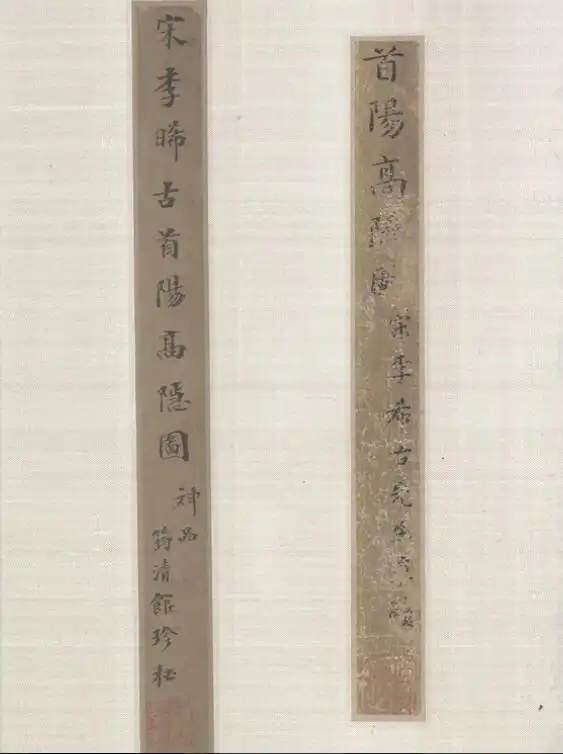 首陽高隱圖
宋李希古
宋李晞古首陽高隱圖
神品
筠清館珍秘